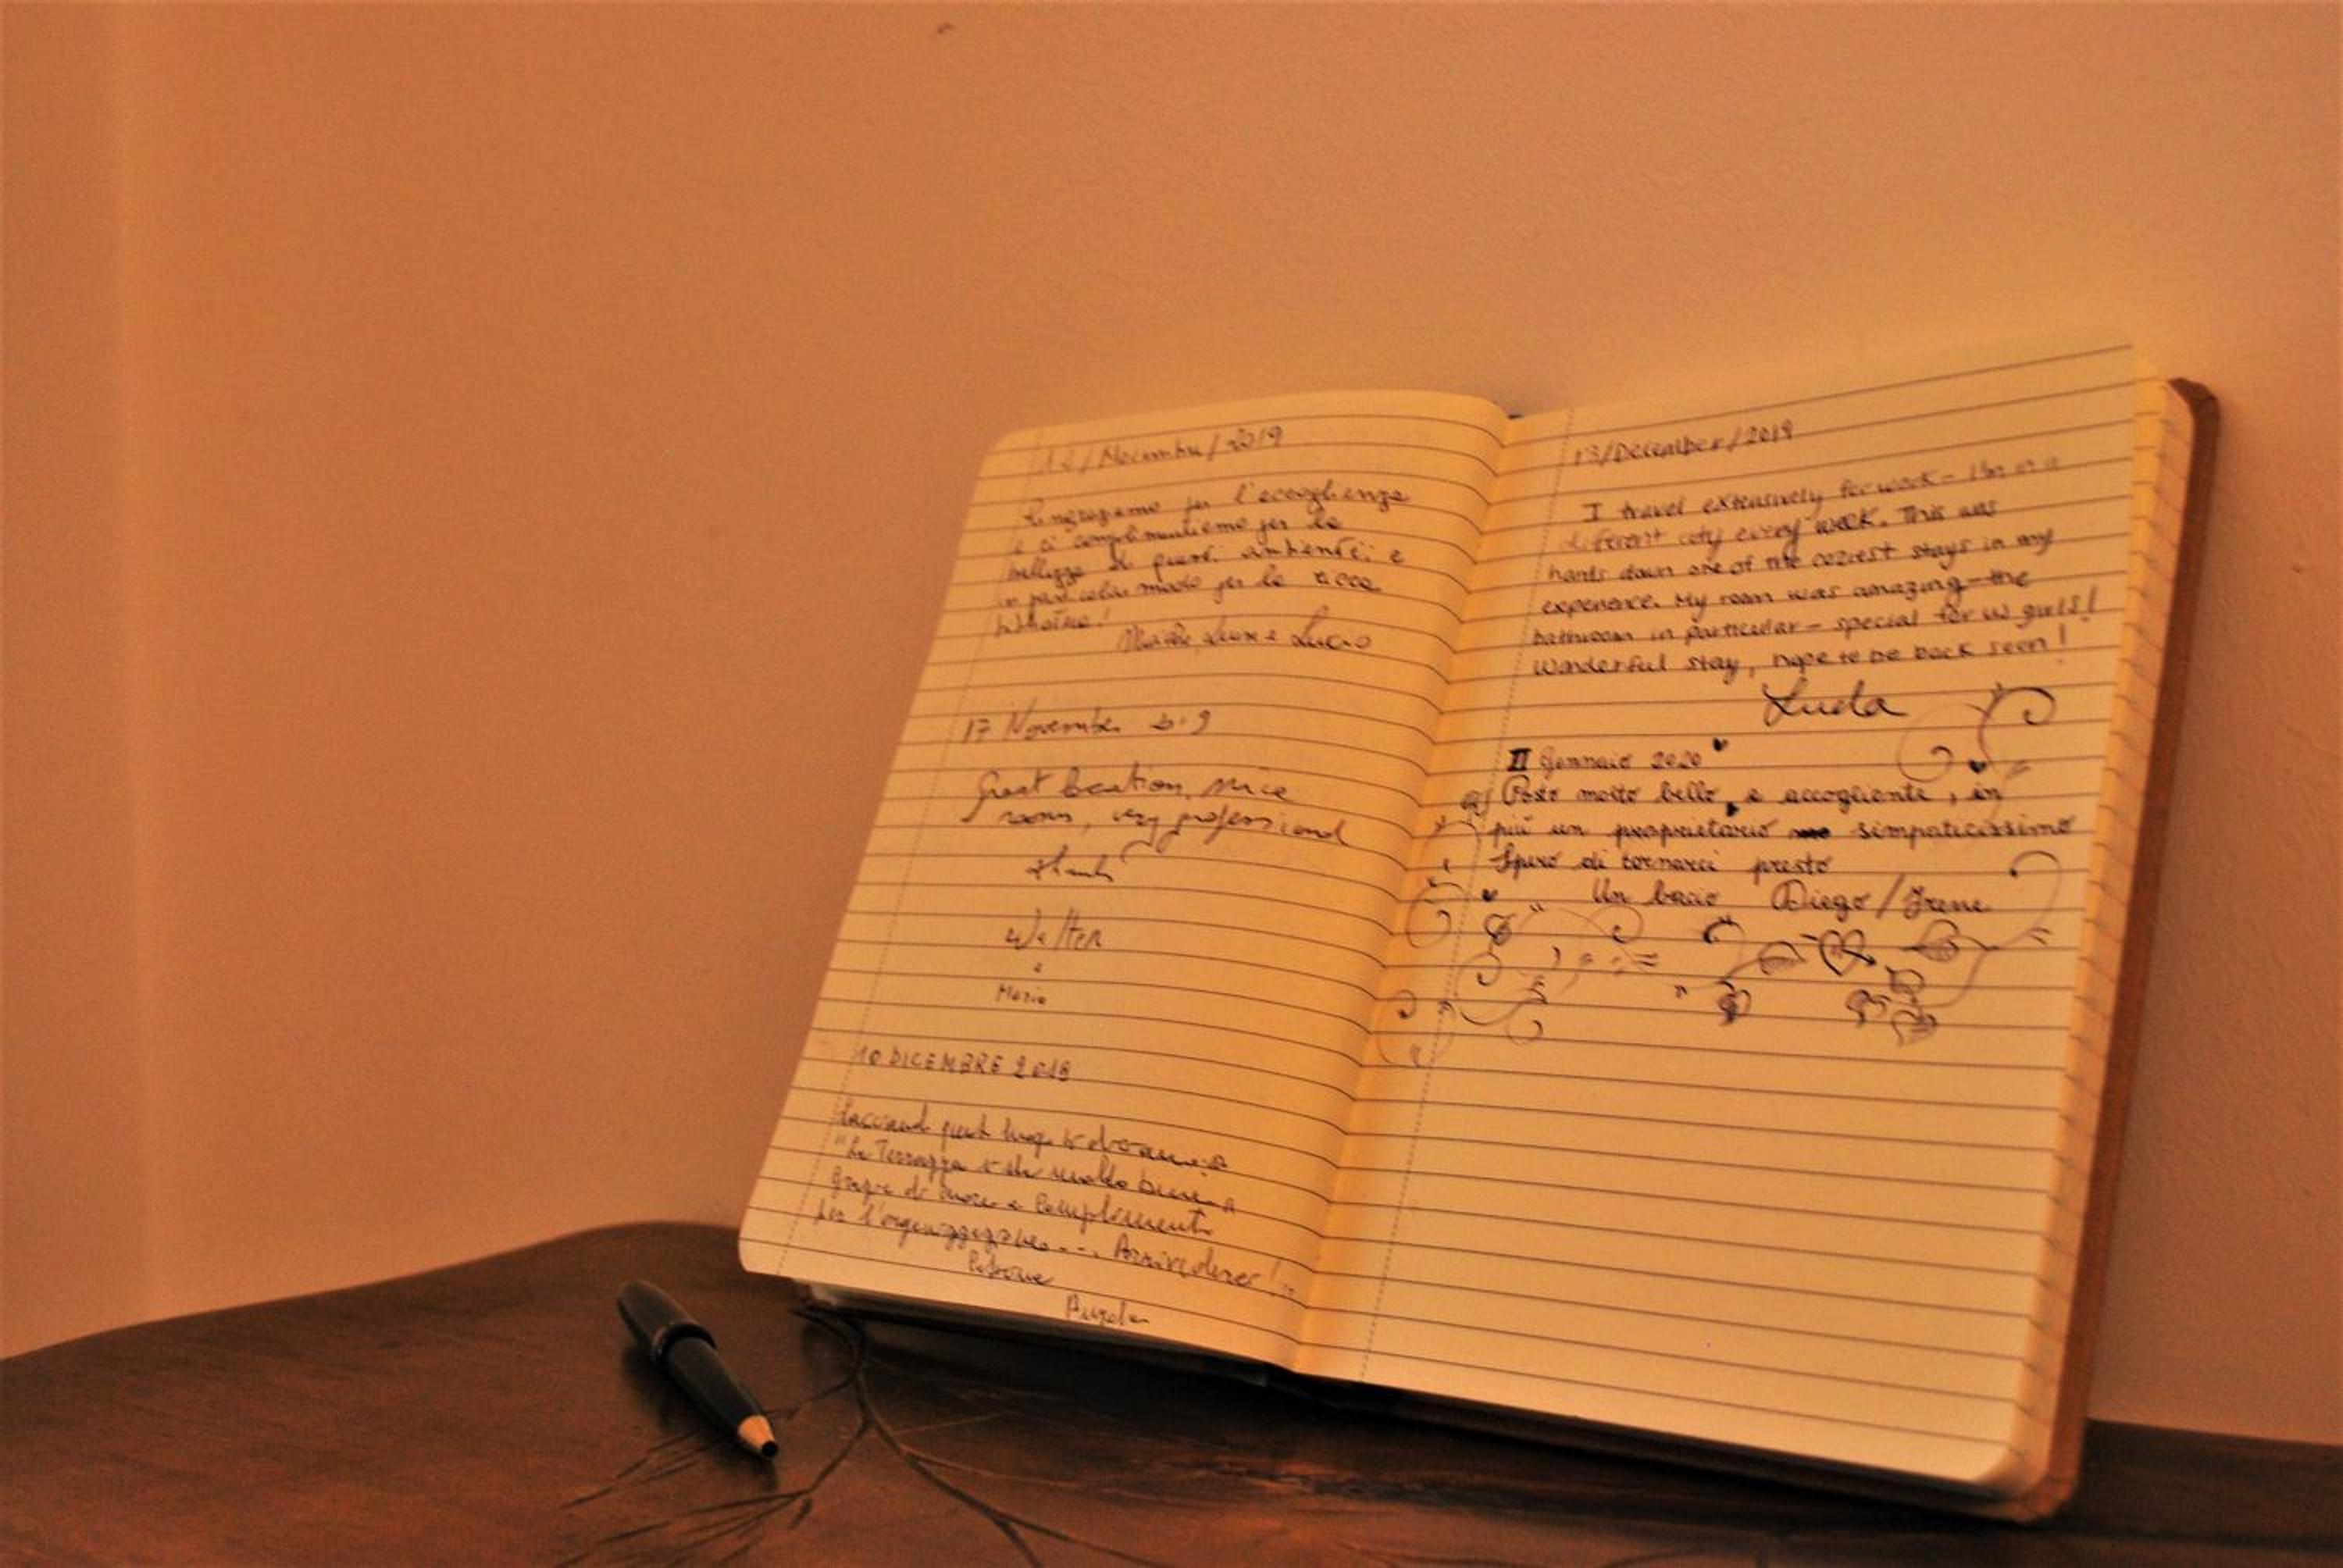 /2019
Ringraziamo per l'accoglienza
e ci complimentiamo per la
bellezza di questi ambienti e
in particolar modo per la ricca
e Lucio
17 November
Great location, nice
room, very professional
thanks
Walter
e
Maria
10 DICEMBRE 2019
"La Terrazza
grazie di cuore e complimenti
per l'organizzazione... Arrivederci!
13/December/2019
I travel extensively for work - I'm in a
different city every week. This was
hands down one of the coziest stays in my
experience. My room was amazing - the
bathroom in particular - special for us girls!
Wonderful stay, hope to be back soon!
II Gennaio 2020
Posto molto bello, e accogliente, in
più un proprietario simpaticissimo
Spero di tornarci presto
Un bacio Diego/Irene